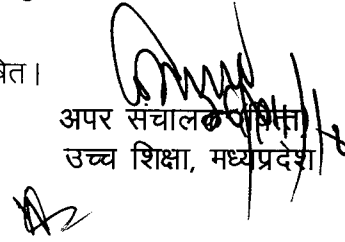 षित।
अपर संचालक (वित्त)
उच्च शिक्षा, मध्यप्रदेश